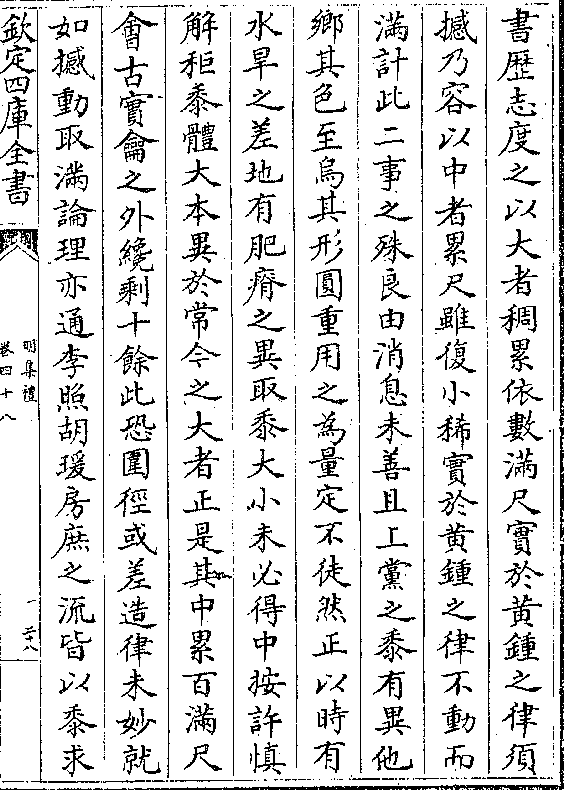 書歴志度之以大者稠累依數滿尺實於黄鍾之律須
撼乃容以中者累尺雖復小稀實於黄鍾之律不動而
滿計此二事之殊良由消息未善且上黨之黍有異他
鄉其色至烏其形圓重用之為量定不徒然正以時有
水旱之差地有肥瘠之異取黍大小未必得中按許慎
解秬黍體大本異於常今之大者正是其中累百滿尺
㑹古實龠之外纔剰十餘此恐圍徑或差造律未妙就
如撼動取滿論理亦通李照胡瑗房庶之流皆以黍求
欽定四庫全書
明集禮
卷四十八
二十八